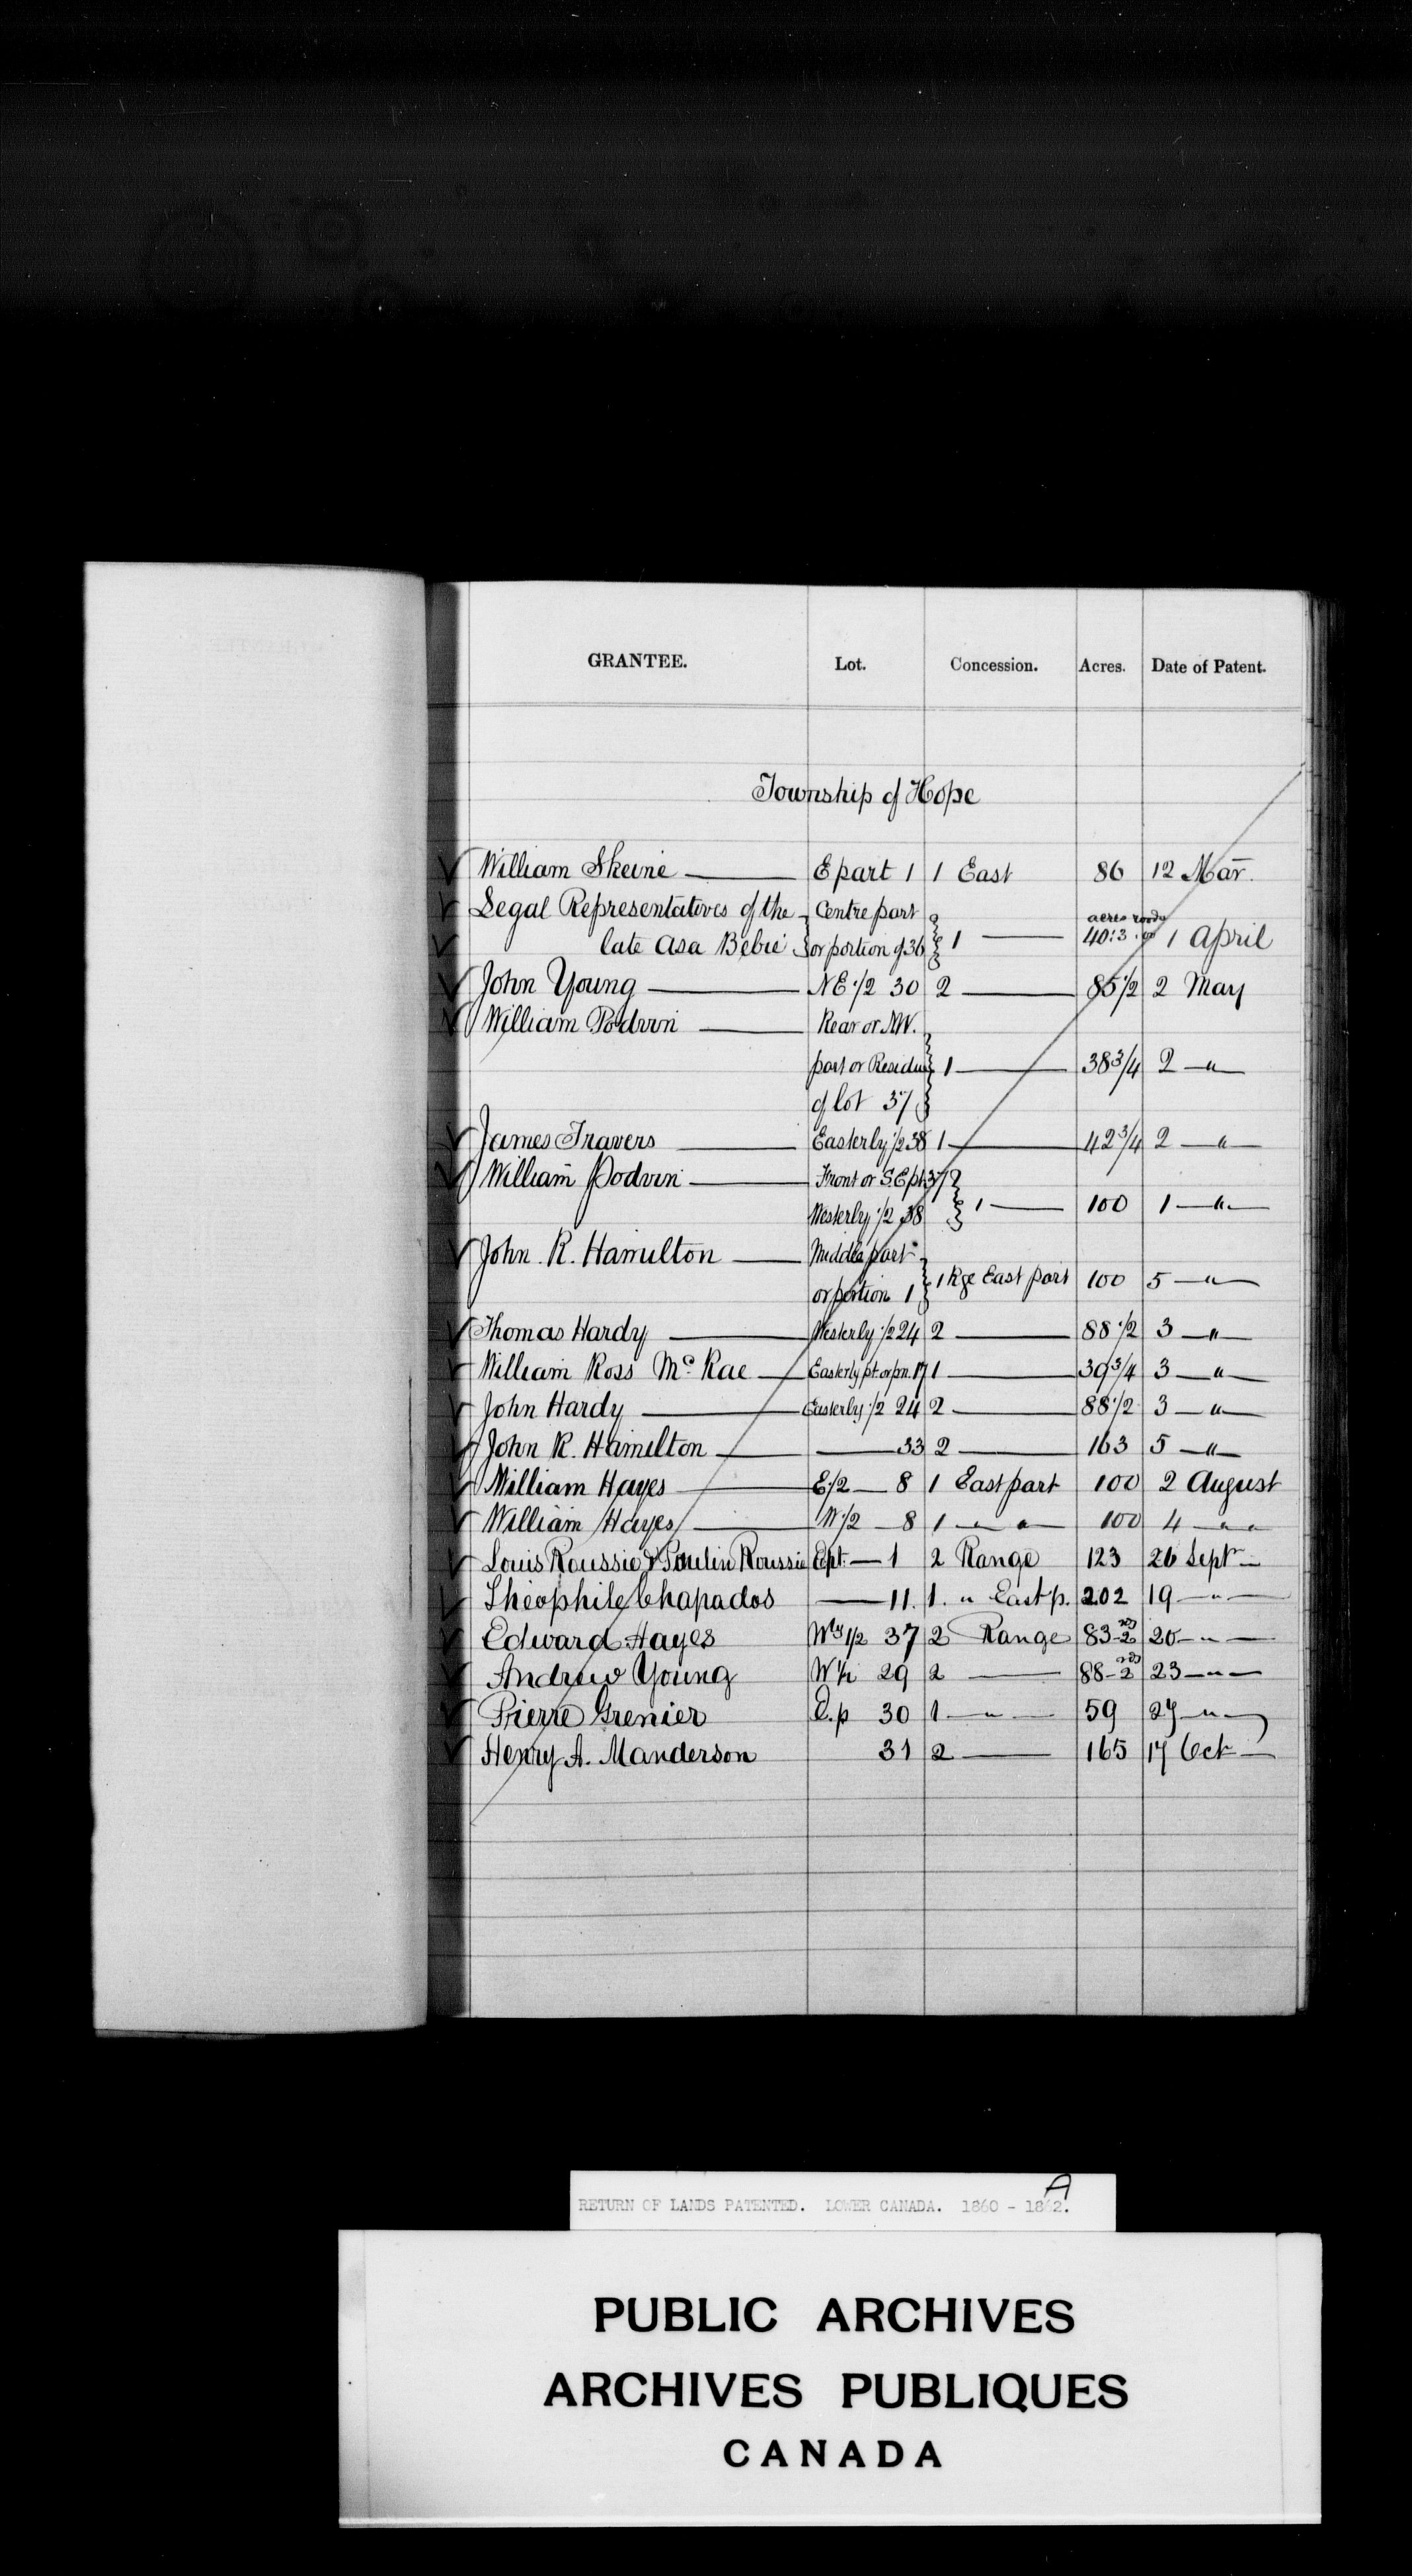 GRANTEE. Lot. Concession. Acres. Date of Patent.
Township of Hope
William Skeine — E part 1 1 East 86 12 Mar.
Legal Representatives of the Centre part acres roods
late Asa Bebie or portion of 36 1 — 40:3 1 April
John Young — NE 1/2 30 2 — 85 1/2 2 May
William Podvin — Rear or NW.
part or Residue 1 — 38 3/4 2 — " —
of lot 37
James Travers — Easterly 1/2 38 1 — 42 3/4 2 — " —
William Podvin — Front or S.E pt 37
Westerly 1/2 38 1 — 100 1 — " —
John R. Hamilton — Middle part
or portion 1 1 Rge East part 100 5 — " —
Thomas Hardy — Westerly 1/2 24 2 — 88 1/2 3 — " —
William Ross Mc Rae — Easterly pt. or pn. 17 1 — 39 3/4 3 — " —
John Hardy — Easterly 1/2 24 2 — 88 1/2 3 — " —
John R. Hamilton — — 33 2 — 163 5 — " —
William Hayes — E 1/2 — 8 1 East part 100 2 August
William Hayes — W 1/2 — 8 1 — " " — 100 4 — " "
Louis Roussie & Paulin Roussie Ept. — 1 2 Range 123 26 Sept —
Théophile Chapados — 11. 1. " East p. 202 19 — " —
Edward Hayes Wly 1/2 37 2 Range 83-2 rds 20 — " —
Andrew Young W 1/2 29 2 — 88-2 rds 23 — " —
Pierre Grenier E.p 30 1 — " — 59 27 — " —
Henry A. Manderson 31 2 — 165 17 Oct —
RETURN OF LANDS PATENTED. LOWER CANADA. 1860 - 1862. A
PUBLIC ARCHIVES
ARCHIVES PUBLIQUES
CANADA